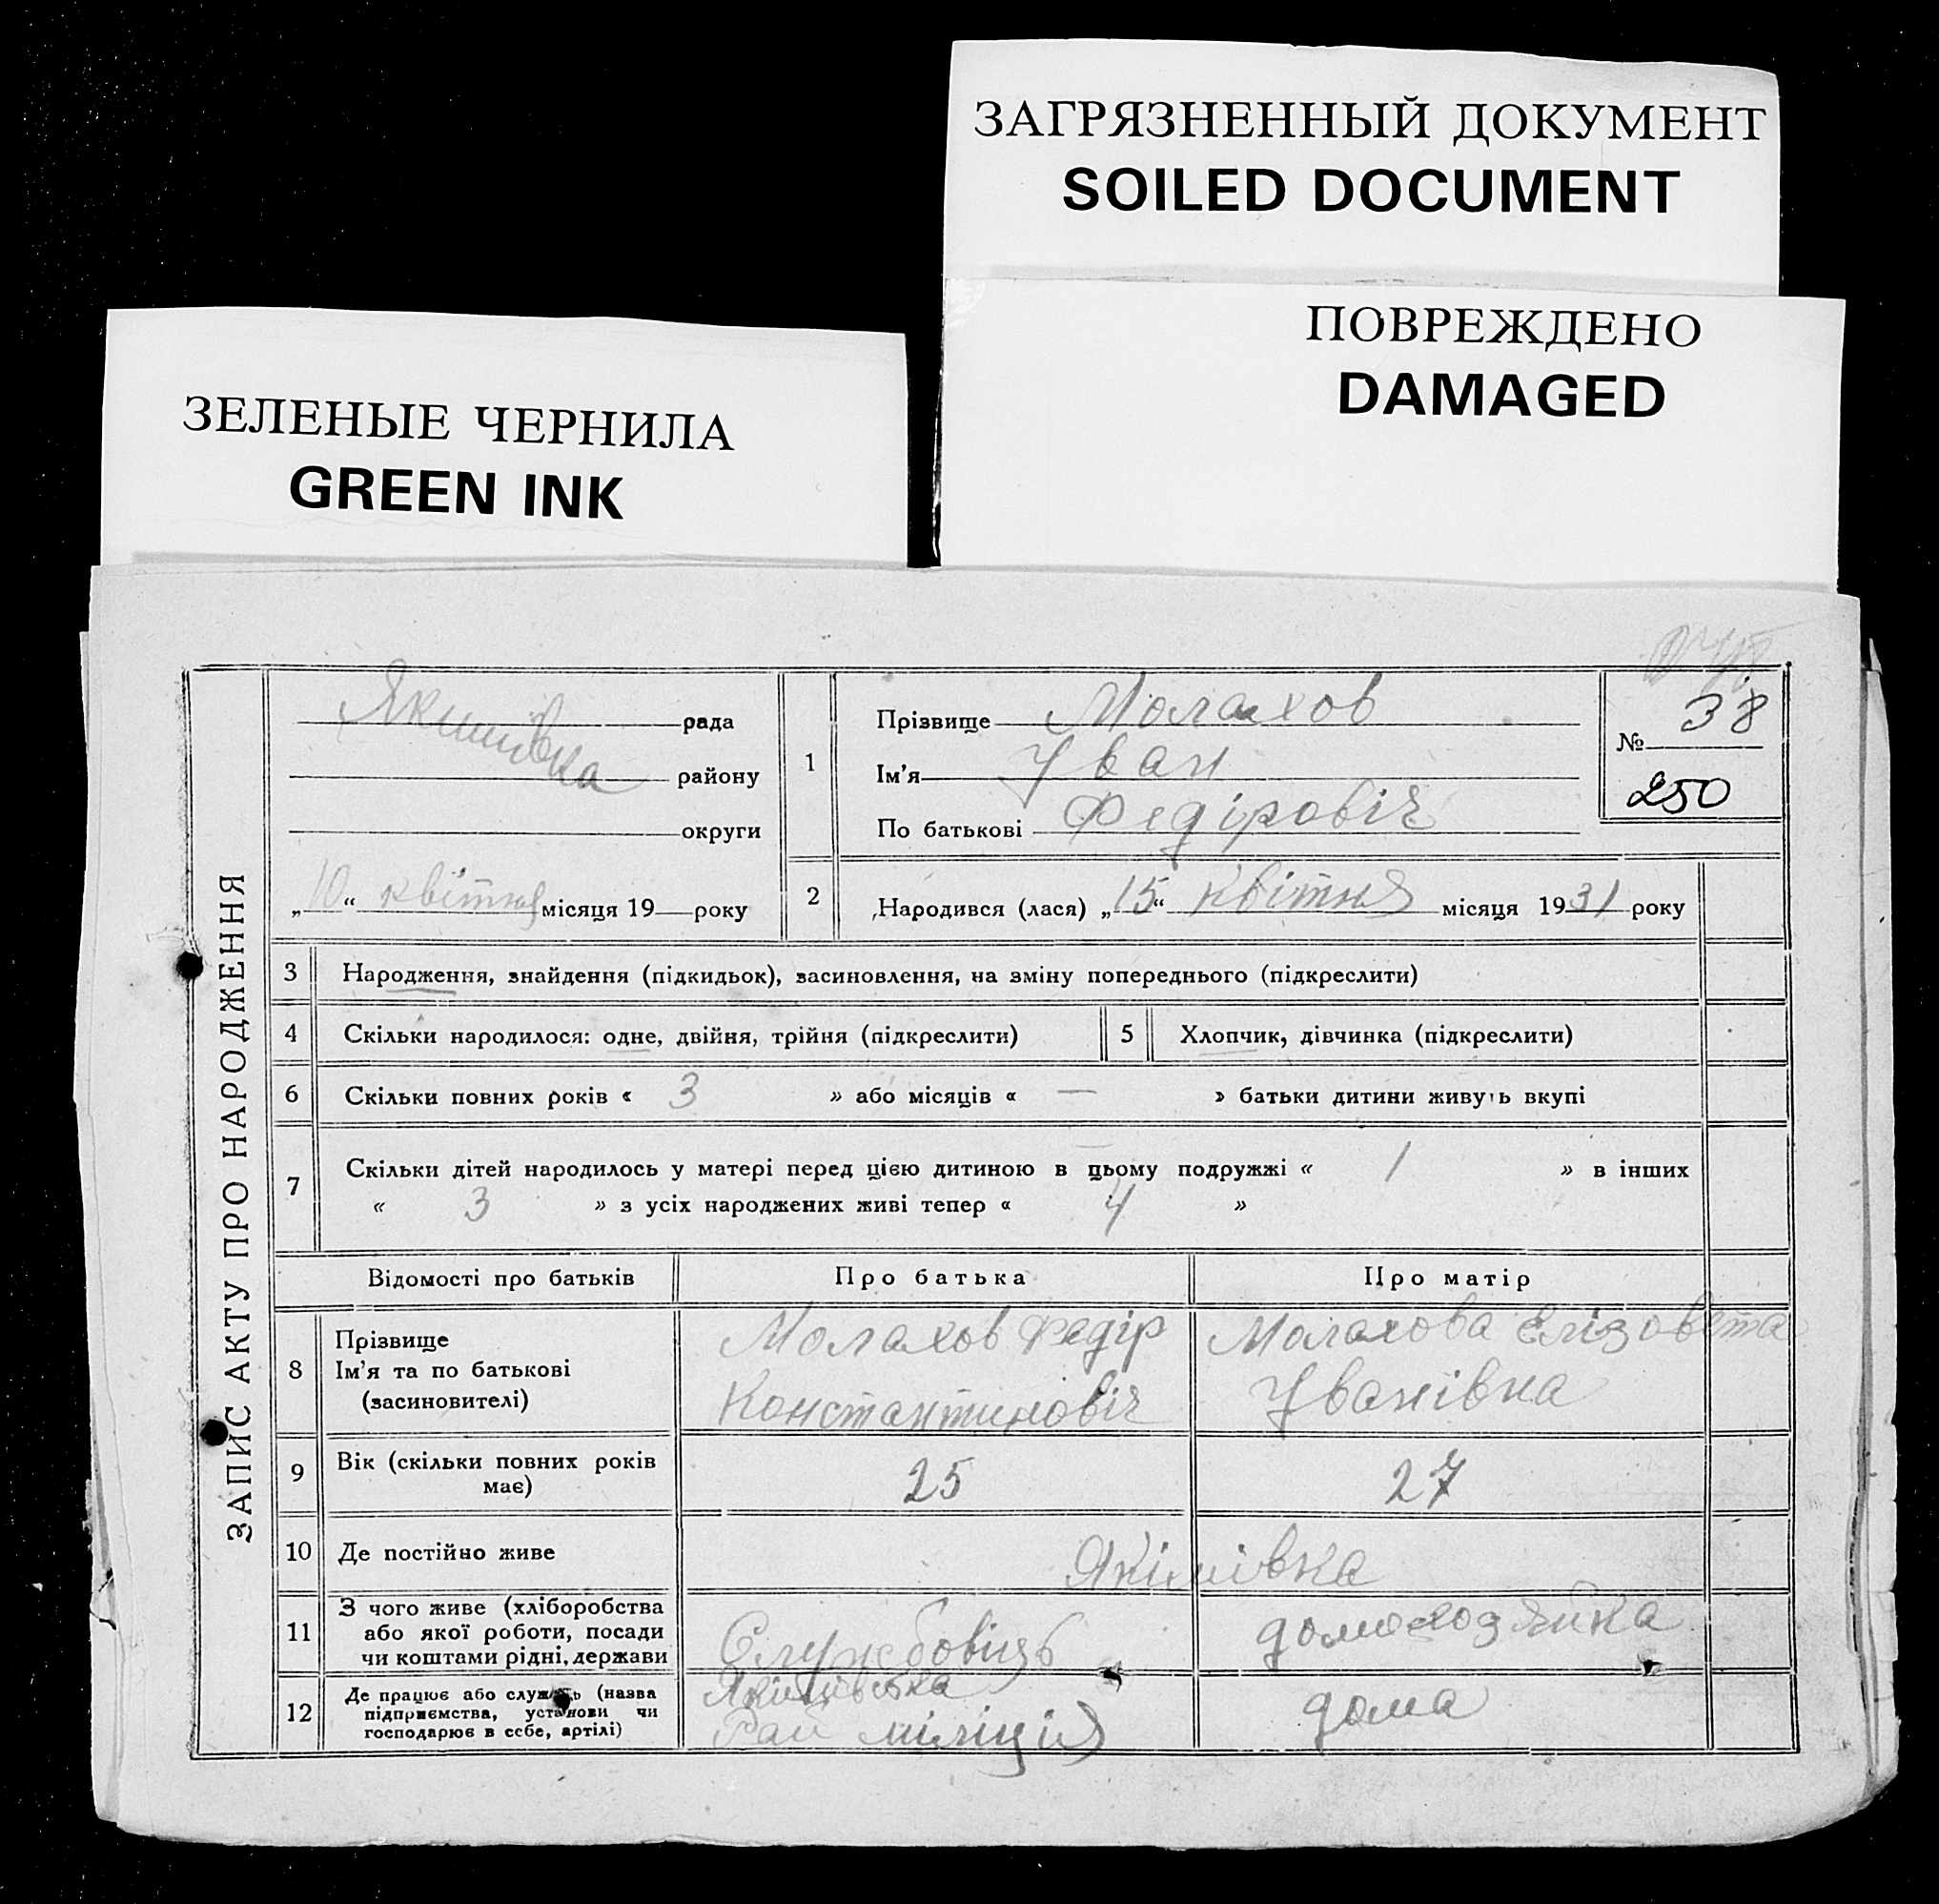 ЗАГРЯЗНЕННЫЙ ДОКУМЕНТ
SOILED DOCUMENT
ПОВРЕЖДЕНО
DAMAGED
ЗЕЛЕНЫЕ ЧЕРНИЛА
GREEN INK
ЗАПИС АКТУ ПРО НАРОДЖЕННЯ
Якимівка
рада
району
округи
„10“ квітня місяця 19 року
1
Прізвище Молахов
Ім'я Уван
По батькові Федіровіч
№ 38
250
2 Народився (лася) „15“ квітня місяця 1931 року
3 Народження, знайдення (підкидьок), засиновлення, на зміну попереднього (підкреслити)
4 Скільки народилося: одне, двійня, трійня (підкреслити) 5 Хлопчик, дівчинка (підкреслити)
6 Скільки повних років « 3 » або місяців « — » батьки дитини живуть вкупі
7 Скільки дітей народилось у матері перед цією дитиною в цьому подружжі « 1 » в інших
« 3 » з усіх народжених живі тепер « 4 »
Відомості про батьків Про батька Про матір
8 Прізвище
Ім'я та по батькові
(засиновителі)
Молахов Федір
Константиновіч
Молахова Елізовета
Уванівна
9 Вік (скільки повних років
має)
25 27
10 Де постійно живе Якімівка
11 З чого живе (хліборобства
або якої роботи, посади
чи коштами рідні, держави
Службовіць домоходзяйка
12 Де працює або служить (назва
підприємства, установи чи
господарює в себе, артілі)
Якімівська
Рай міліція
дома